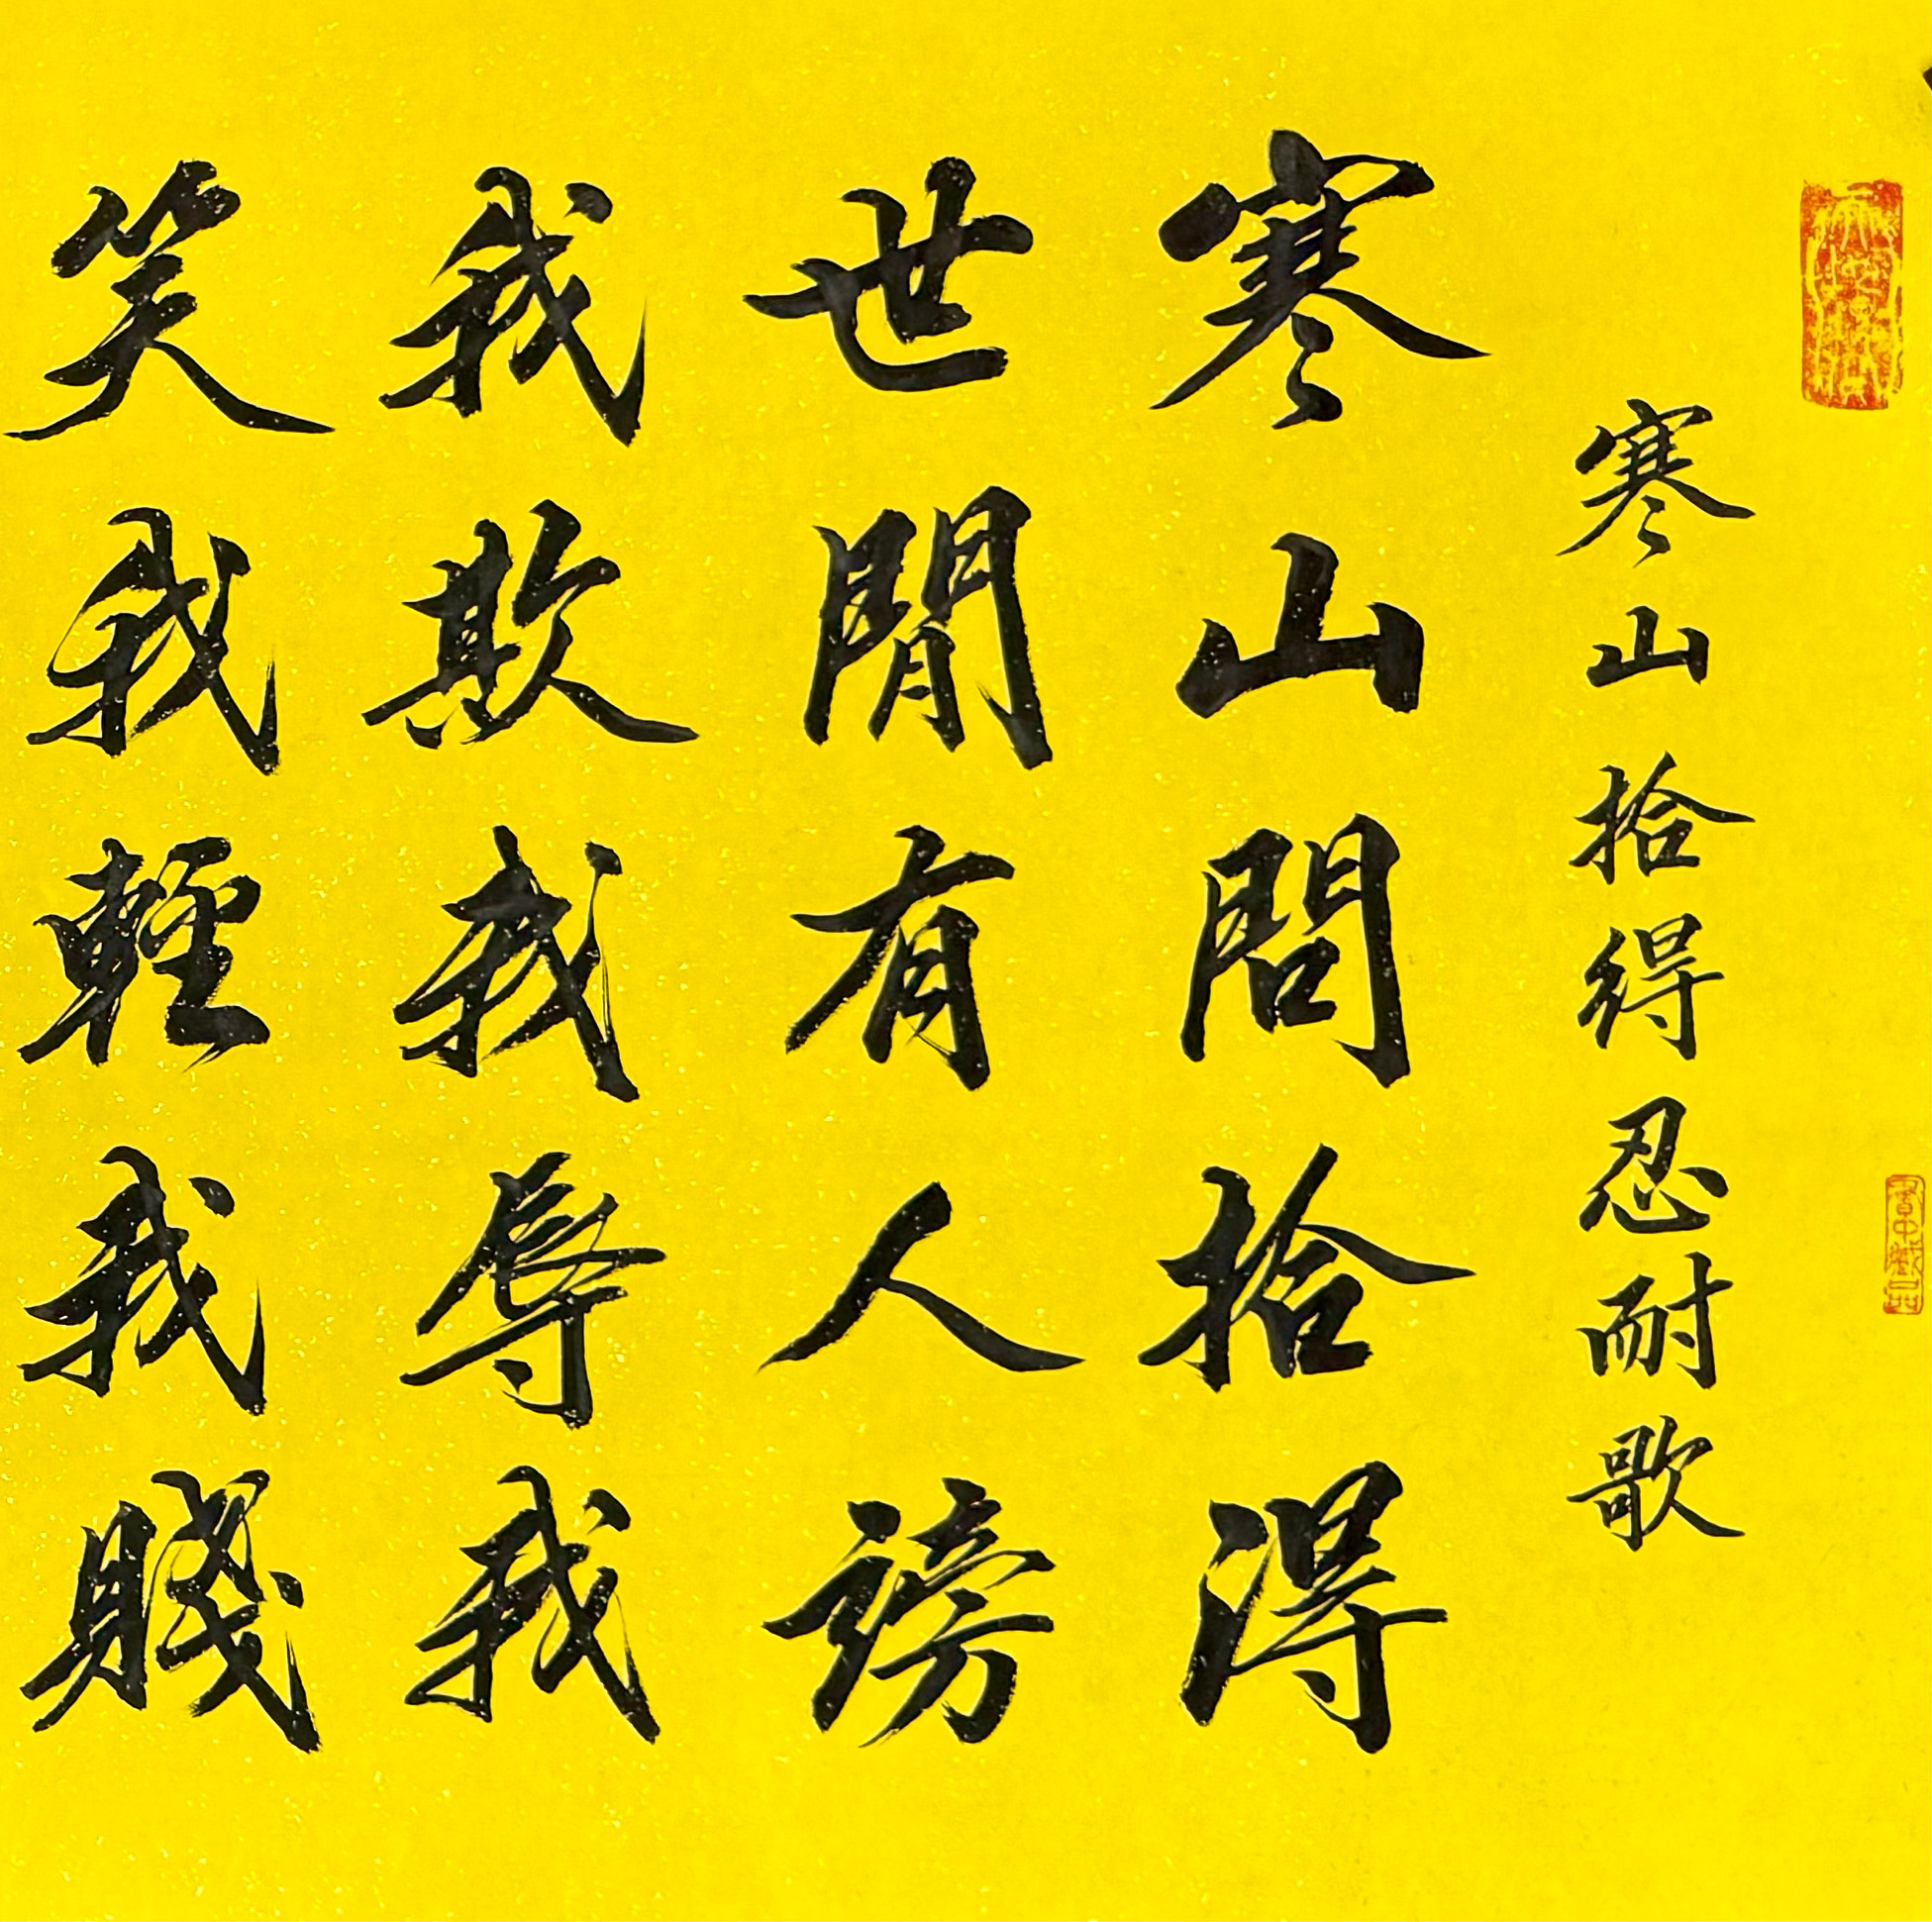 寒山拾得忍耐歌
寒山問拾得
世間有人謗
我欺我辱我
笑我輕我賤